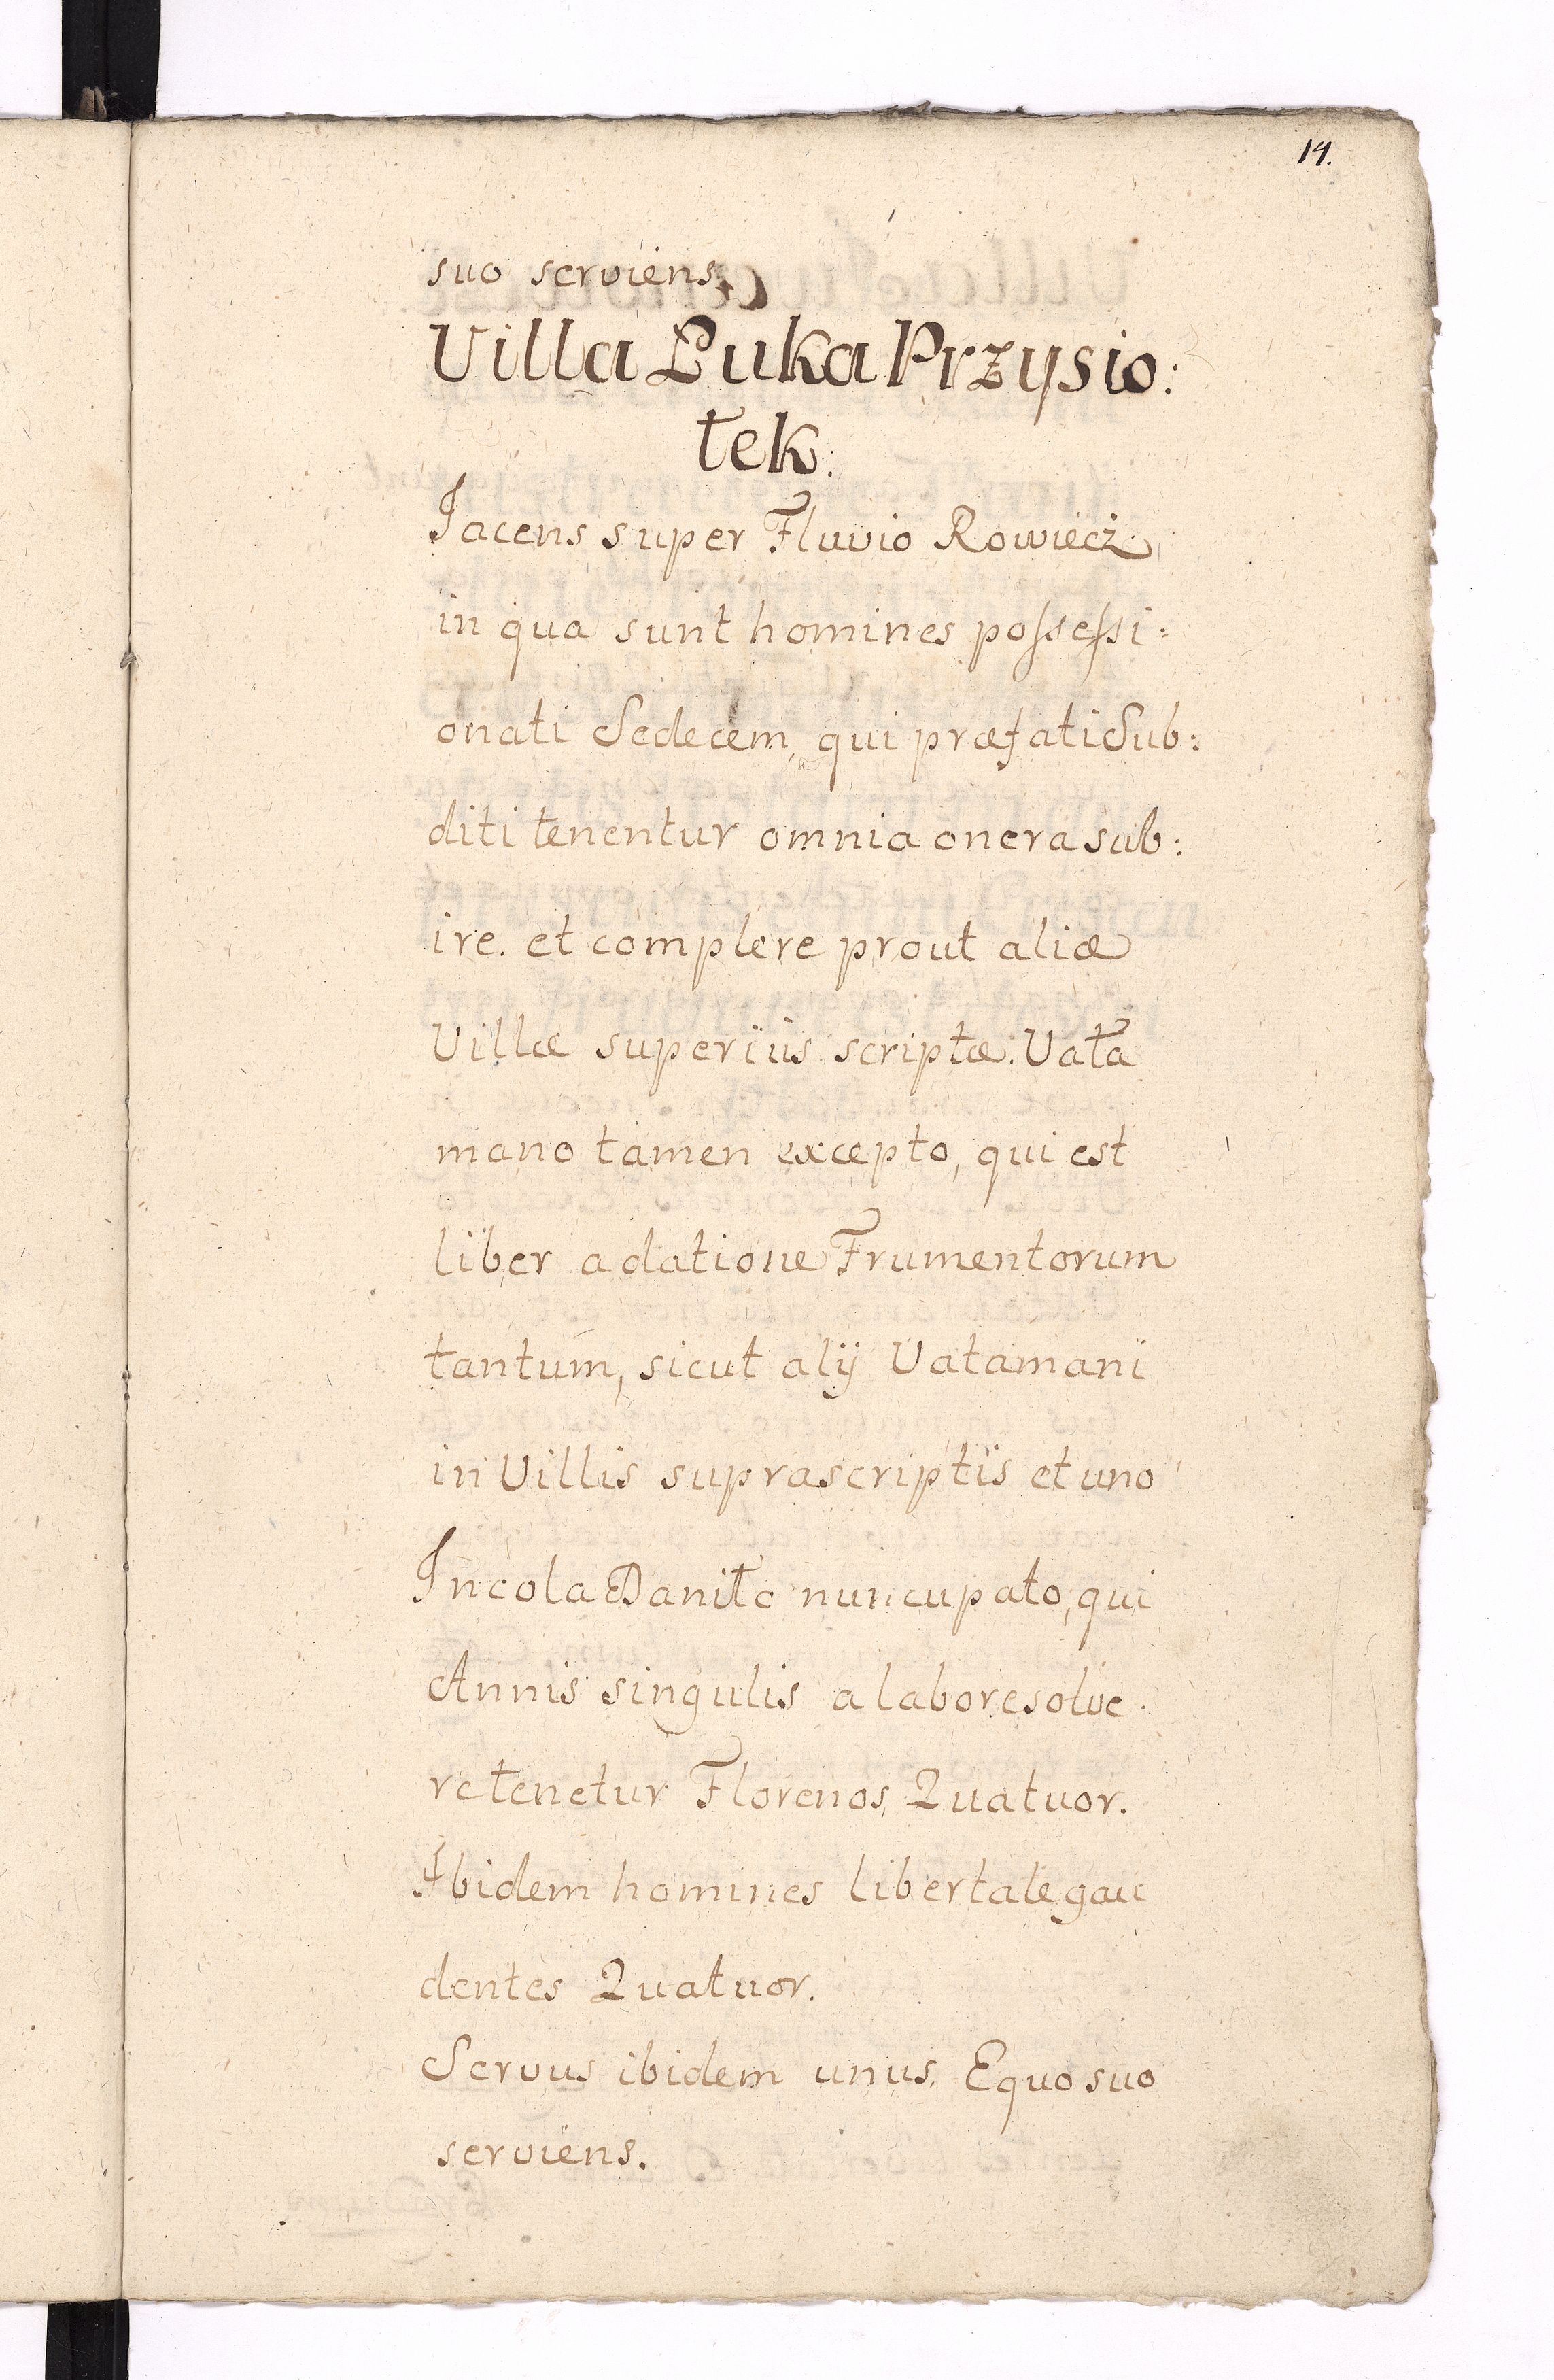 14.
suo serviens.
Villa Łuka Przysio:
tek.
Jacens super Fluvio Rowiecz
in qua sunt homines possessi:
onati Sedecem, qui præfati Sub:
diti tenentur omnia onera sub:
ire. et complere prout aliæ
Villæ superius scriptæ. Vata
mano tamen excepto, qui est
liber a datione Frumentorum
tantum, sicut alÿ Vatamani
in Villis suprascriptis et uno
Incola Daniło nuncupato, qui
Annis singulis a labore solve
re tenetur Florenos Quatuor.
Ibidem homines libertate gau
dentes Quatuor.
Servus ibidem unus Equo suo
serviens.